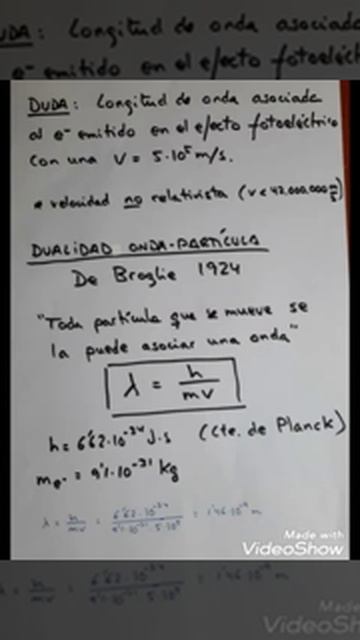 DUDA: Longitud de onda asociada
e⁻ emitido en el efecto fotoeléct
DUDA: Longitud de onda asociada
al e⁻ emitido en el efecto fotoeléctrico
con una V = 5·10⁵ m/s.
* velocidad no relativista (v < 42.000.000 m/s)
DUALIDAD ONDA-PARTÍCULA
De Broglie 1924
"Toda partícula que se mueve se
la puede asociar una onda"
λ = h/mv
h = 6'62·10⁻³⁴ J·s (Cte. de Planck)
me⁻ = 9'1·10⁻³¹ kg
λ = h/mv = 6'62·10⁻³⁴/9'1·10⁻³¹·5·10⁵ = 1'46·10⁻⁹ m
Made with
VideoShow